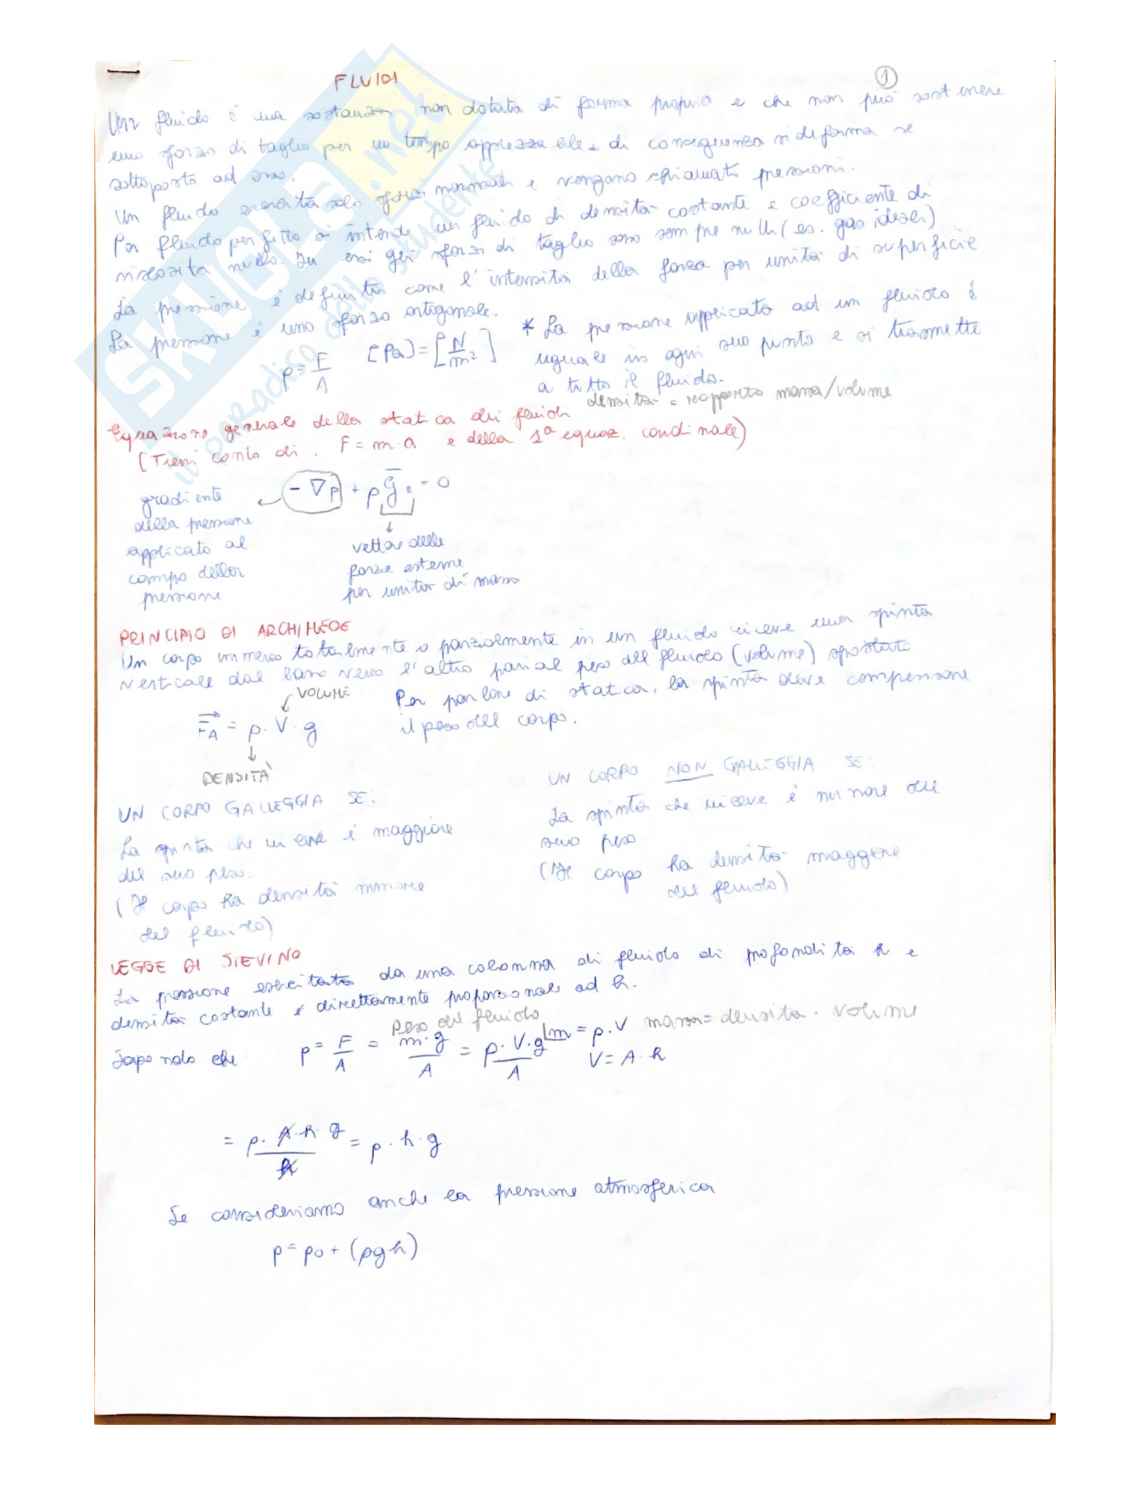 FLUIDI
1
Un fluido è una sostanza non dotata di forma propria e che non può sostenere
uno sforzo di taglio per un tempo apprezzabile e di conseguenza si deforma se
sottoposto ad esso.
Un fluido esercita solo sforzi normali e vengono chiamati pressioni.
Per fluido perfetto si intende un fluido di densità costante e coefficiente di
viscosità nullo. Su essi gli sforzi di taglio sono sempre nulli (es. gas ideali)
La pressione è definita come l'intensità della forza per unità di superficie
La pressione è uno sforzo ortogonale.
p = F/A [Pa] = [N/m²]
* La pressione applicata ad un fluido è
uguale in ogni suo punto e si trasmette
a tutto il fluido.
densità = rapporto massa/volume
Equazione generale della statica dei fluidi
(Tieni conto di F = m·a e della 1ª equaz. cardinale)
- ∇p + ρ g = 0
gradiente
della pressione
applicato al
campo della
pressione
vettore delle
forze esterne
per unità di massa
PRINCIPIO DI ARCHIMEDE
Un corpo immerso totalmente o parzialmente in un fluido riceve una spinta
verticale dal basso verso l'alto pari al peso del fluido (volume) spostato
VOLUME
F_A = ρ · V · g
DENSITÀ
Per parlare di statica, la spinta deve compensare
il peso del corpo.
UN CORPO GALLEGGIA SE:
La spinta che riceve è maggiore
del suo peso.
(Il corpo ha densità minore
del fluido)
UN CORPO NON GALLEGGIA SE:
La spinta che riceve è minore del
suo peso
(Il corpo ha densità maggiore
del fluido)
LEGGE DI STEVINO
La pressione esercitata da una colonna di fluido di profondità h e
densità costante è direttamente proporzionale ad h.
peso del fluido
Sapendo che p = F/A = m·g/A = ρ·V·g/A m = ρ·V massa = densità · volume
V = A·h
= ρ·A·h·g/A = ρ·h·g
Se consideriamo anche la pressione atmosferica
p = p0 + (ρgh)
SKUOLA.net
il paradiso dello studente